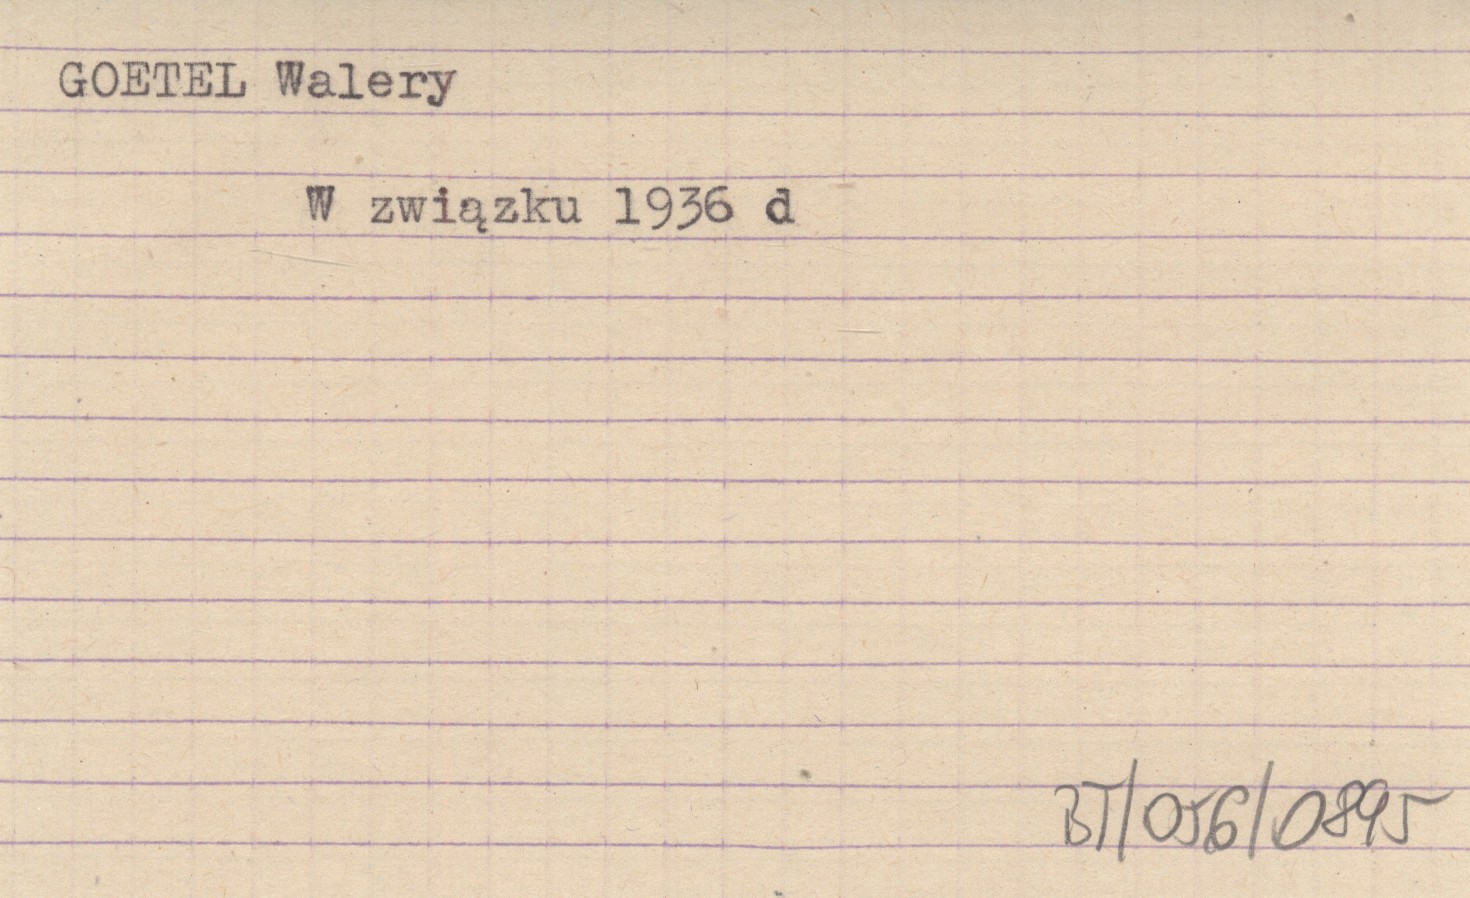 GOETEL Walery
W związku 1936 d
BT/056/0895